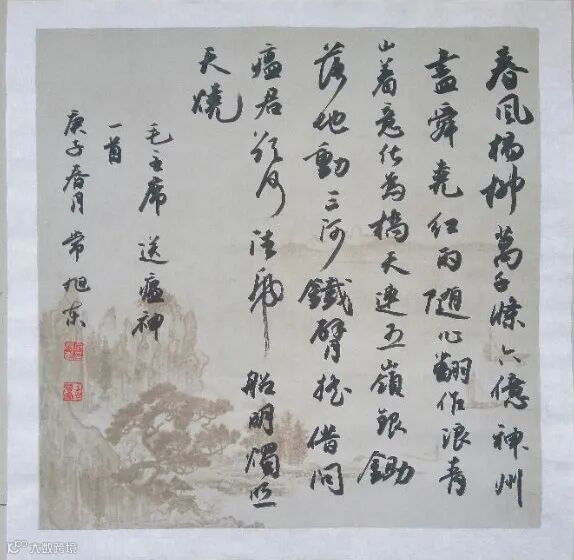 春風楊柳萬千條六億神州
盡舜堯紅雨隨心翻作浪青
山着意化為橋天連五嶺銀鋤
落地動三河鐵臂搖借問
瘟君欲何往帋船明燭照
天燒
毛主席送瘟神
一首
庚子春月常旭东
大数跨境